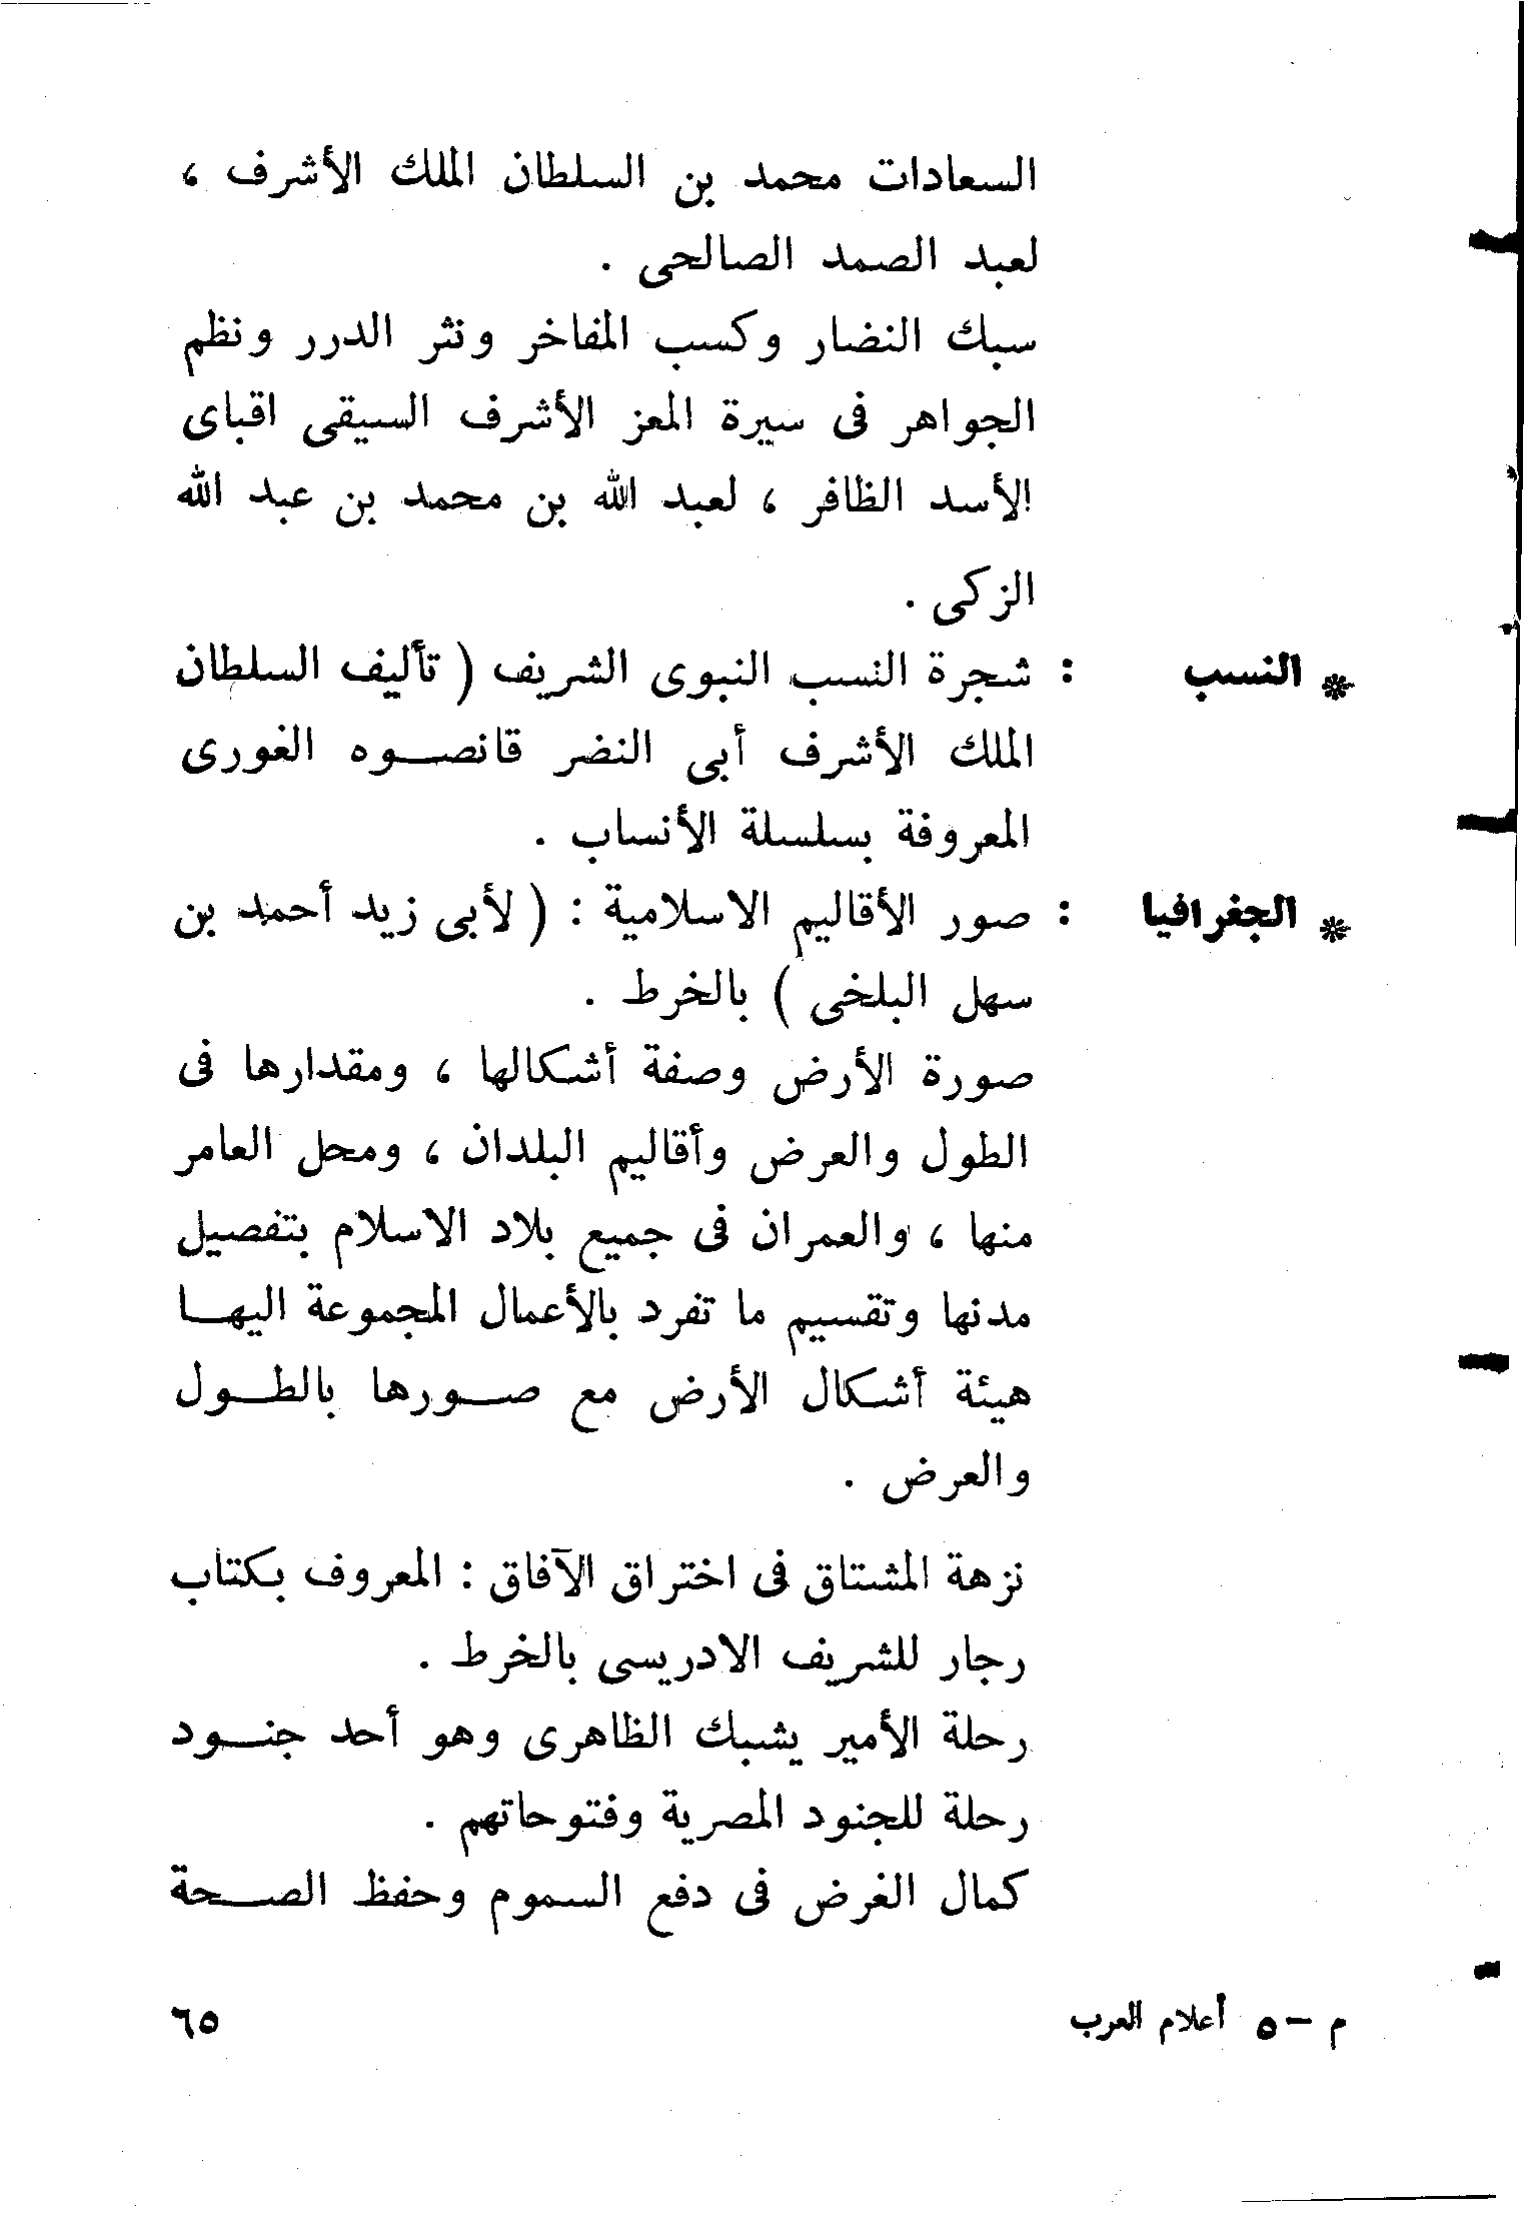 السعادات محمد بن السلطان الملك الأشرف ،
لعبد الصمد الصالحى .
سبك النضار وكسب المفاخر ونثر الدرر ونظم
الجواهر فى سيرة المعز الأشرف السيقى اقباى
الأسد الظافر ، لعبد الله بن محمد بن عبد الله
الزكى .
* النسب : شجرة النسب النبوى الشريف ( تأليف السلطان
الملك الأشرف أبى النضر قانصوه الغورى
المعروفة بسلسلة الأنساب .
* الجغرافيا : صور الأقاليم الاسلامية : ( لأبى زيد أحمد بن
سهل البلخى ) بالخرط .
صورة الأرض وصفة أشكالها ، ومقدارها فى
الطول والعرض وأقاليم البلدان ، ومحل العامر
منها ، والعمران فى جميع بلاد الاسلام بتفصيل
مدنها وتقسيم ما تفرد بالأعمال المجموعة اليها
هيئة أشكال الأرض مع صورها بالطول
والعرض .
نزهة المشتاق فى اختراق الآفاق : المعروف بكتاب
رجار للشريف الادريسى بالخرط .
رحلة الأمير يشبك الظاهرى وهو أحد جنود
رحلة للجنود المصرية وفتوحاتهم .
كمال الغرض فى دفع السموم وحفظ الصحة
م – ٥ أعلام العرب
٦٥